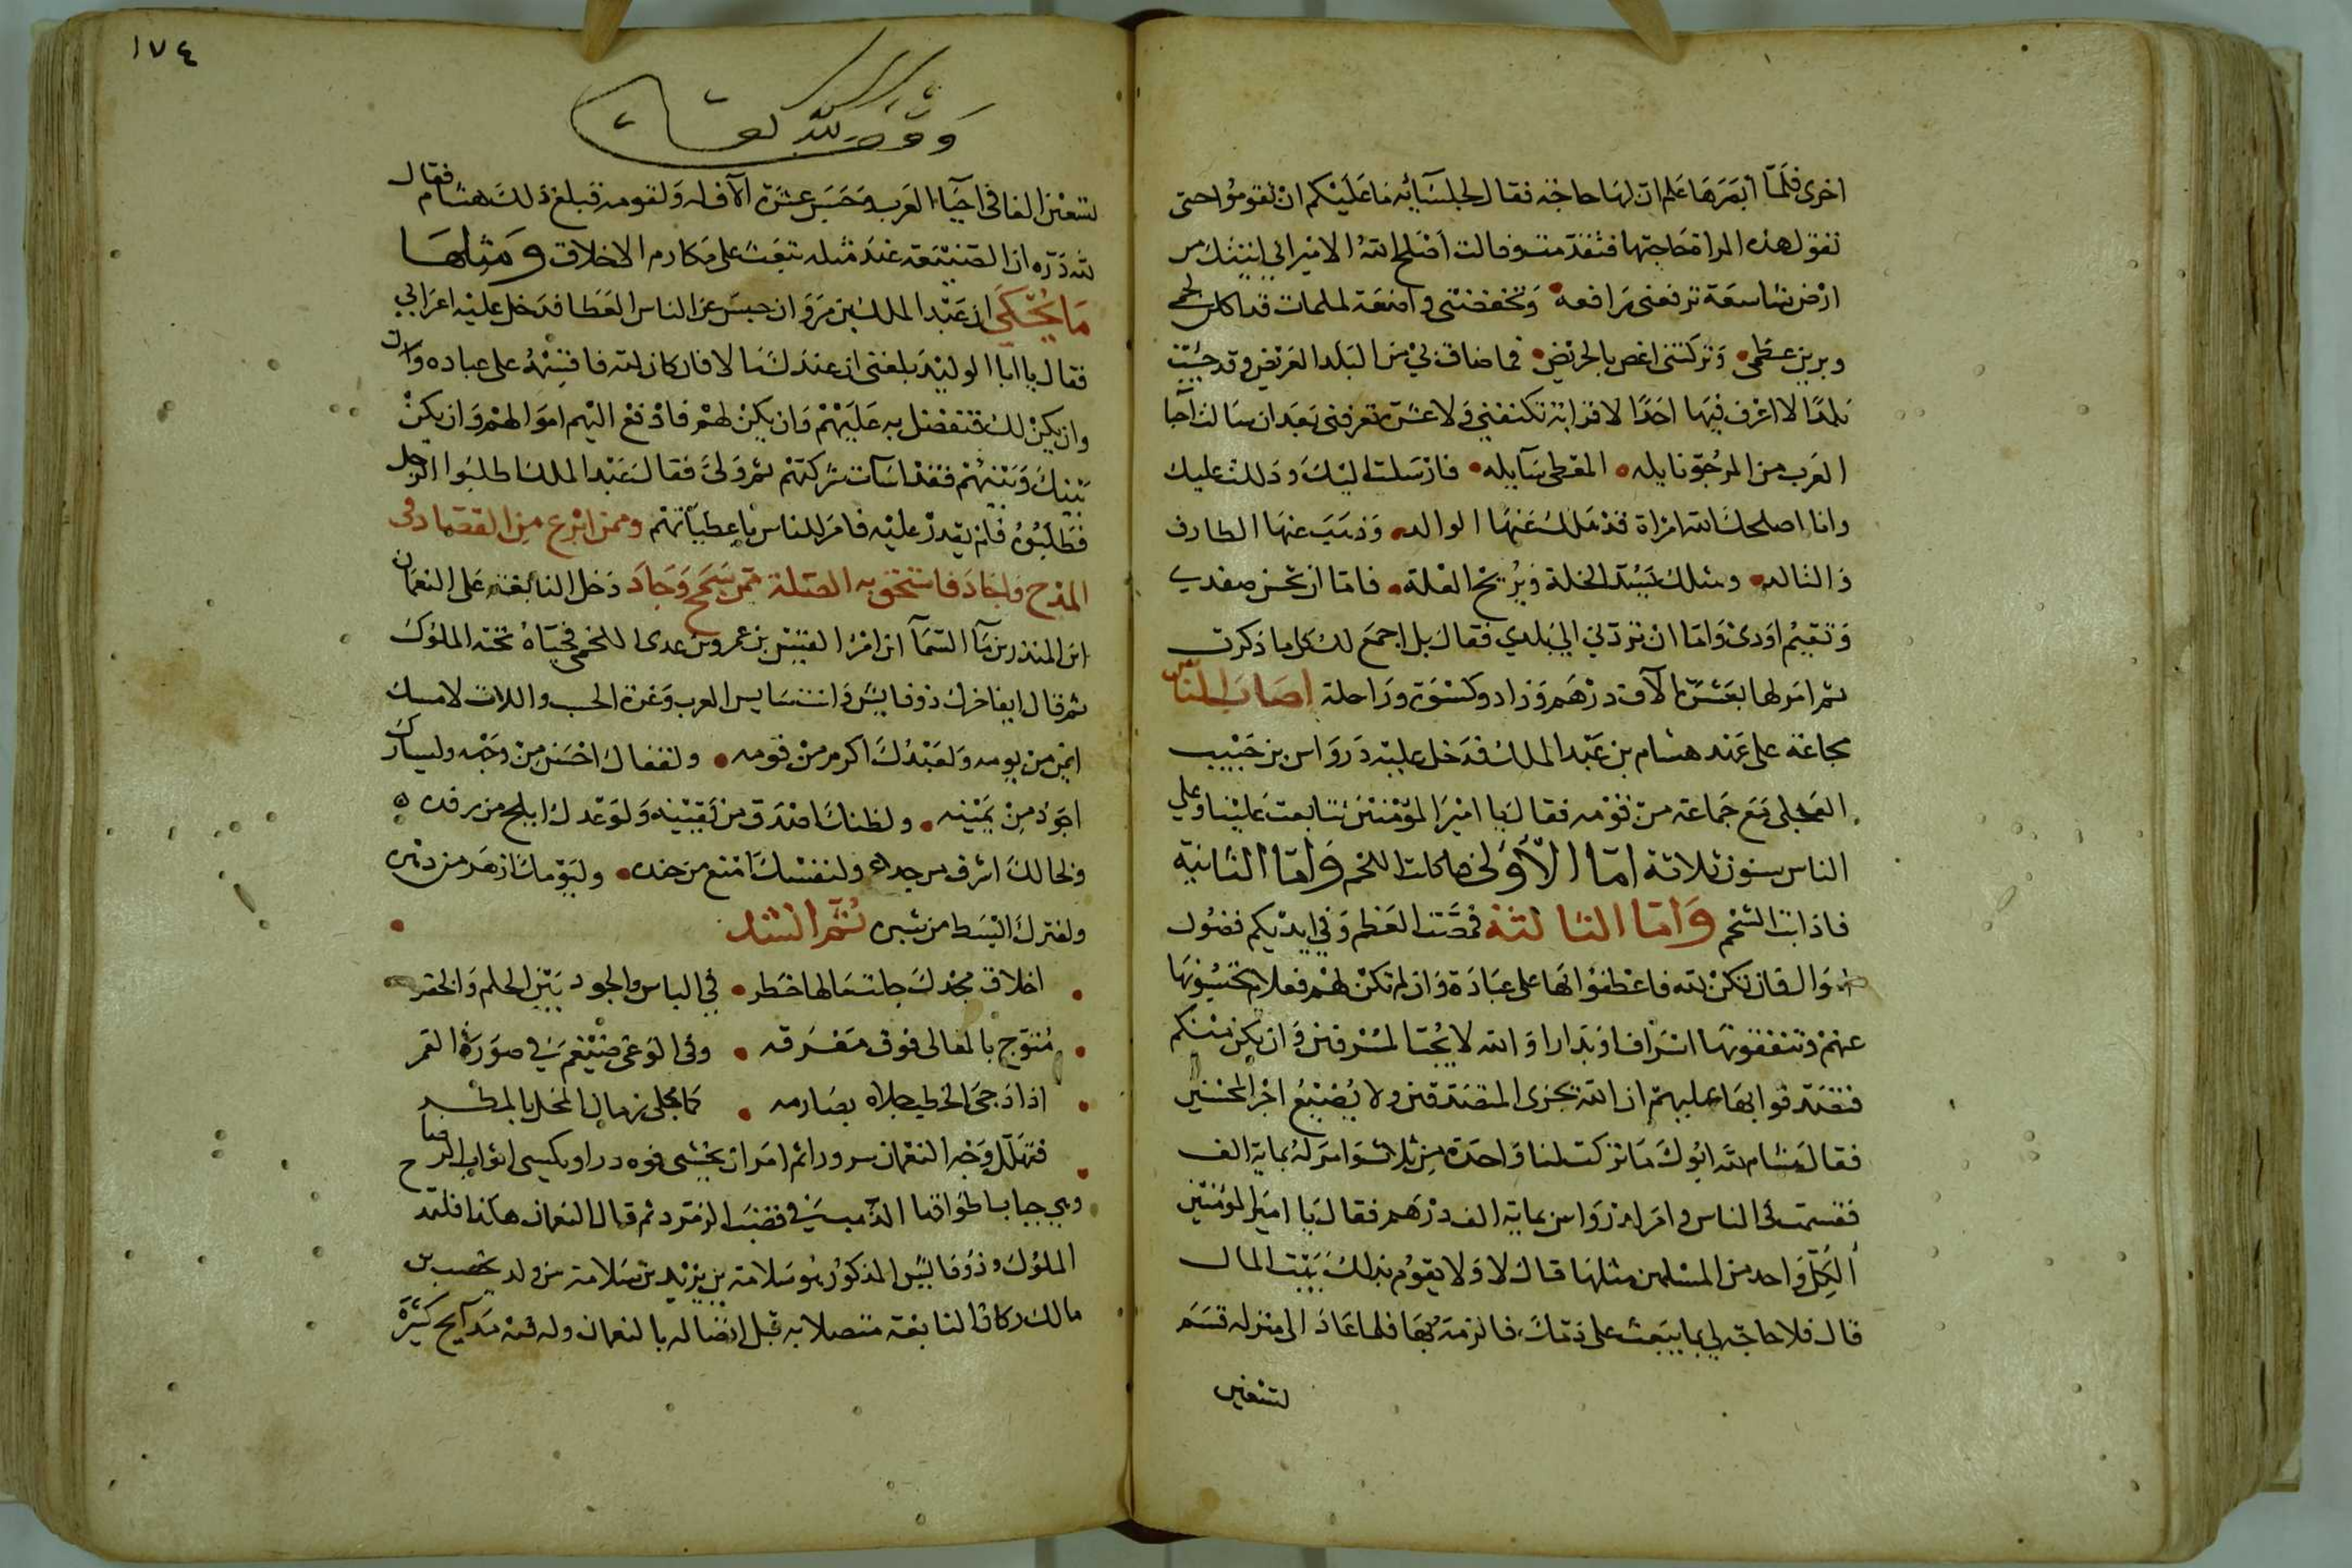 اخرى فلما ابصرها علم ان لها حاجة فقال لجلسائه ما عليكم ان تقوموا حتى
تقول هذه المراة حاجتها فتقدمت وقالت اصلح الله الامير اني اتيتك من
ارض شاسعة ترفعني رافعة وتخفضني واضعة لملمات قد اكلن لحمي
وبرين عظمي وتركتني اغص بالجريض فما ضاق بي من البلد العريض وقد جئت
بلدًا لا اعرف فيها احدًا لا قرابة تكنفني ولا عشيرة تعرفني بعد ان سالت احيا
العرب من المرجو نايله المعطى سايله فارسلت اليك ودللت عليك
وانا اصلحك الله امراة قد هلك عنها الوالد وذهب عنها الطارف
والتالد ومثلك يسد الخلة ويزيح العلة فاما ان تحسن صفدي
وتقيم اودي واما ان تردني الي بلدي فقال بل اجمع لك كل ما ذكرت
ثم امر لها بعشرة الاف درهم وزاد وكسوة وراحلة اصاب الناس
مجاعة على عهد هشام بن عبد الملك فدخل عليه درواس بن حبيب
العجلي مع جماعة من قومه فقال يا امير المؤمنين تتابعت علينا وعلي
الناس سنون ثلاثة اما الاولى فاكلت اللحم واما الثانية
فاذابت الشحم واما الثالثة فمصت العظم وفي ايديكم فضول
اموال فان تكن لله فاعطفوا بها على عباده وان لم تكن لهم فعلام تحبسونها
عنهم وتنفقونها اسرافا وبدارا والله لا يحب المسرفين وان يكن منكم
فتصدقوا بها عليهم ان الله يجزي المتصدقين ولا يضيع اجر المحسنين
فقال هشام لله ابوك ما تركت لنا واحدة من ثلاث وامر له بماية الف
فقسمت في الناس وامر لدرواس بماية الف درهم فقال يا امير المؤمنين
الكل واحد من المسلمين مثلها قال لا ولا يقوم بذلك بيت المال
قال فلا حاجة لي بما يبعث على ذمك فالزمه بها فلما عاد الى منزله قسم
لتسعين
١٧٤
وقف لله تعالى
لتسعين الفا في احيا العرب وحبس عشرة الاف له ولقومه فبلغ ذلك هشام فقال
لله دره ان الصنيعة عند مثله تبعث على مكارم الاخلاق ومثلها
ما يحكى ان عبد الملك بن مروان حبس عن الناس العطا فدخل عليه اعرابي
فقال يا ابا الوليد بلغني ان عندك مالا فان كان لله فاقسمه على عباده وان
وان يكن لك فتفضل به عليهم وان يكن لهم فادفع اليهم اموالهم وان يكن
بينك وبينهم فقد اسات شركتهم ثم ولى فقال عبد الملك اطلبوا الرجل
فطلبوه فلم يقدر عليه فامر للناس باعطياتهم وممن ابرع من القصاد في
المدح واجاد فاستحق به الصلة ممن سمح وجاد دخل النابغة على النعمان
ابن المنذر بن ما السما ابن امرا القيس بن عمرو بن عدى اللخمي فحياه تحية الملوك
ثم قال ايفاخرك ذو فايش وانت سايس العرب وغرة الحسب واللات لامسك
ايمن من يومه ولعبدك اكرم من قومه ولقفاك احسن من وجهه وليسارك
اجود من يمينه ولظنك اصدق من يقينه ولوعدك ابلج من رفده
ولخالك اشرف من جده ولنفسك امنع من جنده وليومك ازهر من دهره
ولفترك ابسط من شبره ثم انشد
اخلاق مجدك جلت مالها خطر في الباس والجود بين الحلم والخفر
متوج بالمعالي فوق مفرقه وفي الوغى ضيغم في صورة القمر
اذا دجى الخطب جلاه بصارمه كما يجلى زمان المحل بالمطر
فتهلل وجه النعمان سرورا ثم امر ان يحشى فوه درا ويكسى اثواب الرضا
وهي جباب اطواقها الذهب في قضب الزمرد ثم قال النعمان هكذا فلتمدح
الملوك وذو فايش المذكور هو سلامة بن يزيد بن سلامة من ولد يحصب بن
مالك وكان النابغة متصلا به قبل اتصاله بالنعمان وله فيه مدايح كثيرة